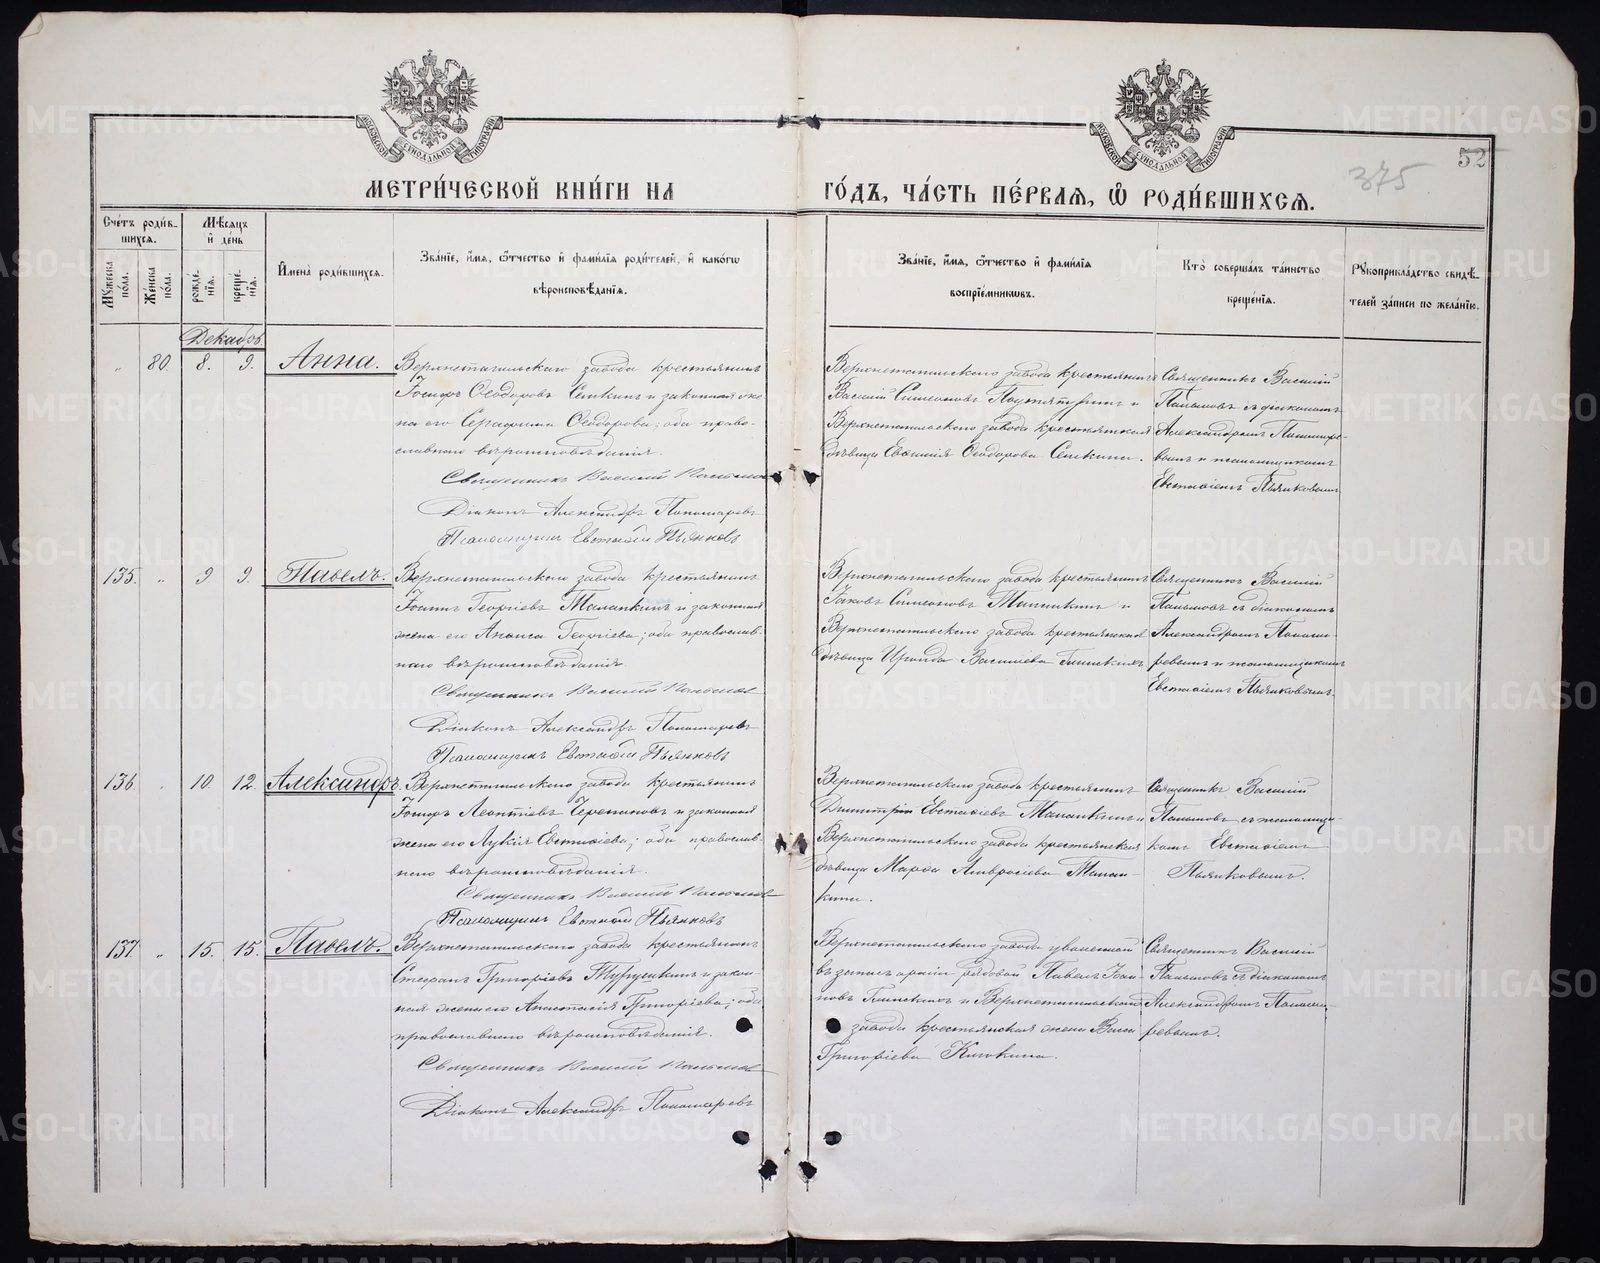 МОСКОВСКОЙ СѴНОДАЛЬНОЙ ТИПОГРАФІИ
МОСКОВСКОЙ СѴНОДАЛЬНОЙ ТИПОГРАФІИ
52
375
МЕТРИ́ЧЕСКОЙ КНИ́ГИ НА ГО́ДЪ, ЧА́СТЬ ПЕ́РВАЯ, Ѡ҆ РОДИ́ВШИХСЯ.
Сче́тъ роди́в-
шихся.
Мꙋ́жеска по́ла.
Же́нска по́ла.
Мѣ́сяцъ
и҆ де́нь
рожде́-
нїя.
креще́-
нїя.
И҆мена̀ роди́вшихся.
Зва́нїе, и҆́мя, ѻ҆́тчество и҆ фами́лїя роди́телей, и҆ како́гѡ
вѣроисповѣ́данїя.
Зва́нїе, и҆́мя, ѻ҆́тчество и҆ фами́лїя
воспрїе́мникѡвъ.
Кто̀ соверша́лъ та́инство
креще́нїя.
Рꙋкоприкла́дство свидѣ́-
телей за́писи по жела́нїю.
Декабрь
„ 80. 8. 9. Анна.
Верхнетагильскаго завода крестьянинъ
Іосифъ Ѳеодоровъ Семкинъ и законная же-
на его Серафима Ѳеодорова; оба право-
славнаго вѣроисповѣданія.
Священникъ Василій
Діаконъ Александръ Пономаревъ
Псаломщикъ Евстаѳій Пьянковъ
Верхнетагильскаго завода крестьянинъ
Василій Симеоновъ и
Верхнетагильскаго завода крестьянская
дѣвица Евѳимія Ѳеодорова Семкина.
Священникъ Василій
съ діакономъ
Александромъ Пономаре-
вымъ и псаломщикомъ
Евстаѳіемъ Пьянковымъ.
135. „ 9 9. Павелъ.
Верхнетагильскаго завода крестьянинъ
Іоаннъ Георгіевъ Маманкинъ и законная
жена его Георгіева; оба православ-
наго вѣроисповѣданія.
Священникъ Василій
Діаконъ Александръ Пономаревъ
Псаломщикъ Евстаѳій Пьянковъ
Верхнетагильскаго завода крестьянинъ
Іаковъ Симеоновъ и
Верхнетагильскаго завода крестьянская
дѣвица Ираида Васильева
Священникъ Василій
съ діакономъ
Александромъ Понома-
ревымъ и псаломщикомъ
Евстаѳіемъ Пьянковымъ.
136. „ 10. 12. Александръ.
Верхнетагильскаго завода крестьянинъ
Іосифъ Леонтіевъ Черепановъ и законная
жена его Лукія Евстаѳіева; оба православ-
наго вѣроисповѣданія.
Священникъ Василій
Псаломщикъ Евстаѳій Пьянковъ
Верхнетагильскаго завода крестьянинъ
Димитрій Евстаѳіевъ Маманкинъ и
Верхнетагильскаго завода крестьянская
дѣвица Марѳа Амвросіева Маман-
кина.
Священникъ Василій
съ псаломщи-
комъ Евстаѳіемъ
Пьянковымъ.
137. „ 15. 15. Павелъ.
Верхнетагильскаго завода крестьянинъ
Стефанъ Григоріевъ и закон-
ная жена его Анастасія Григоріева; оба
православнаго вѣроисповѣданія.
Священникъ Василій
Діаконъ Александръ Пономаревъ
Верхнетагильскаго завода уволенный
въ запасъ арміи рядовой Павелъ Іоан-
новъ и Верхнетагильскаго
завода крестьянская жена Васса
Григоріева
Священникъ Василій
съ діакономъ
Александромъ Понома-
ревымъ.
METRIKI.GASO-URAL.RU